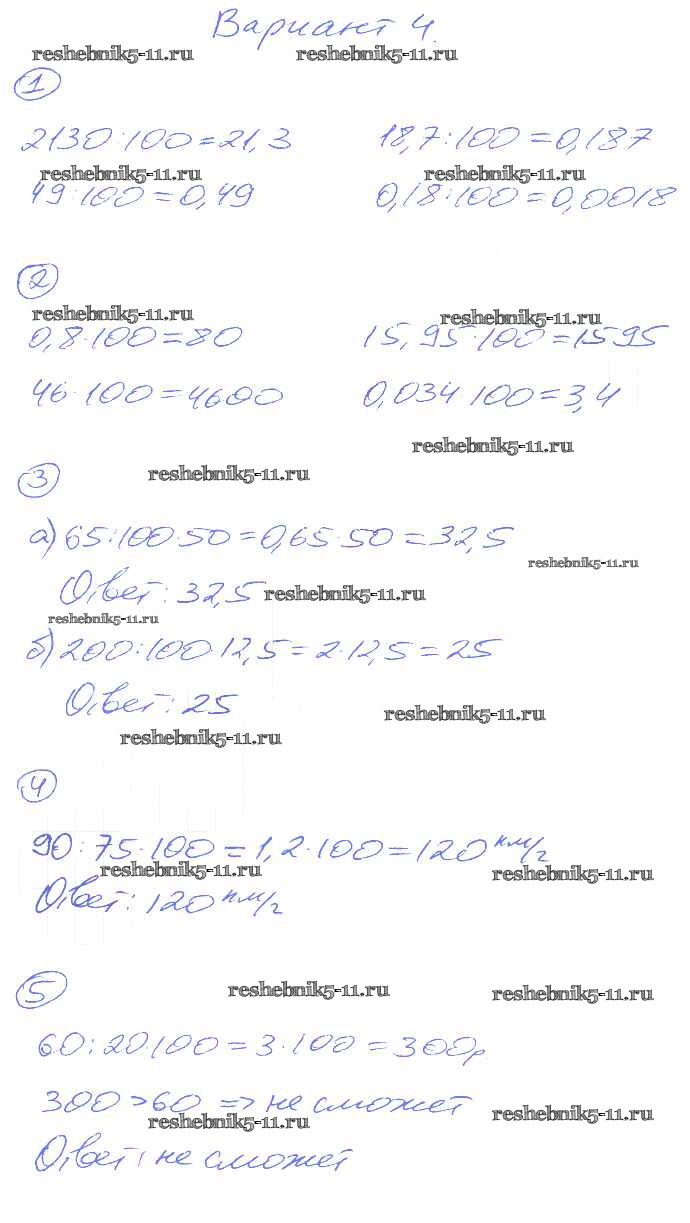 Вариант 4.
reshebnik5-11.ru reshebnik5-11.ru
1
2130:100=21,3 18,7:100=0,187
reshebnik5-11.ru reshebnik5-11.ru
49:100=0,49 0,18:100=0,0018
2
reshebnik5-11.ru reshebnik5-11.ru
0,8·100=80 15,95·100=1595
46·100=4600 0,034 100=3,4
reshebnik5-11.ru
3 reshebnik5-11.ru
а) 65:100·50=0,65·50=32,5
reshebnik5-11.ru
Ответ: 32,5 reshebnik5-11.ru
reshebnik5-11.ru
б) 200:100·12,5=2·12,5=25
Ответ: 25 reshebnik5-11.ru
reshebnik5-11.ru
4
90:75·100=1,2·100=120 км/г
reshebnik5-11.ru reshebnik5-11.ru
Ответ: 120 км/г
5 reshebnik5-11.ru reshebnik5-11.ru
60:20·100=3·100=300р
300>60 => не сможет
reshebnik5-11.ru reshebnik5-11.ru
Ответ: не сможет